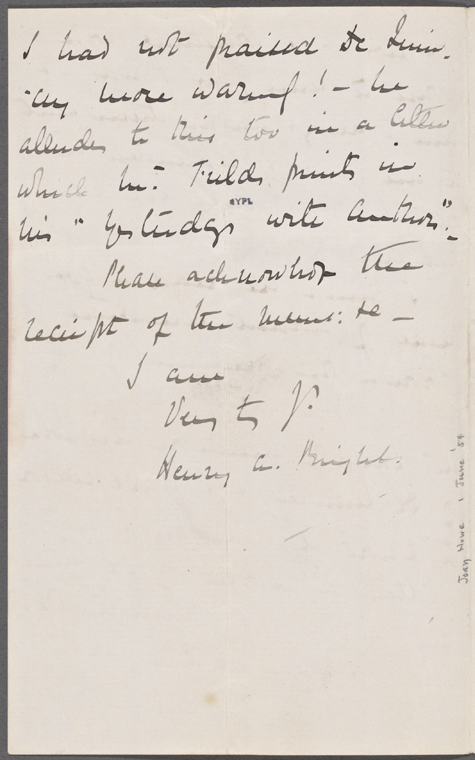 I had not praised De Quin-
-cey more warmly! - he
alludes to this too in a letter
which Mr. Fields prints in
his "Yesterdays with Authors"._
NYPL
Please acknowledge the
receipt of the mem: &c _
I am
Very try Yrs
Henry A. Bright.
Joan Howe 1 June '54